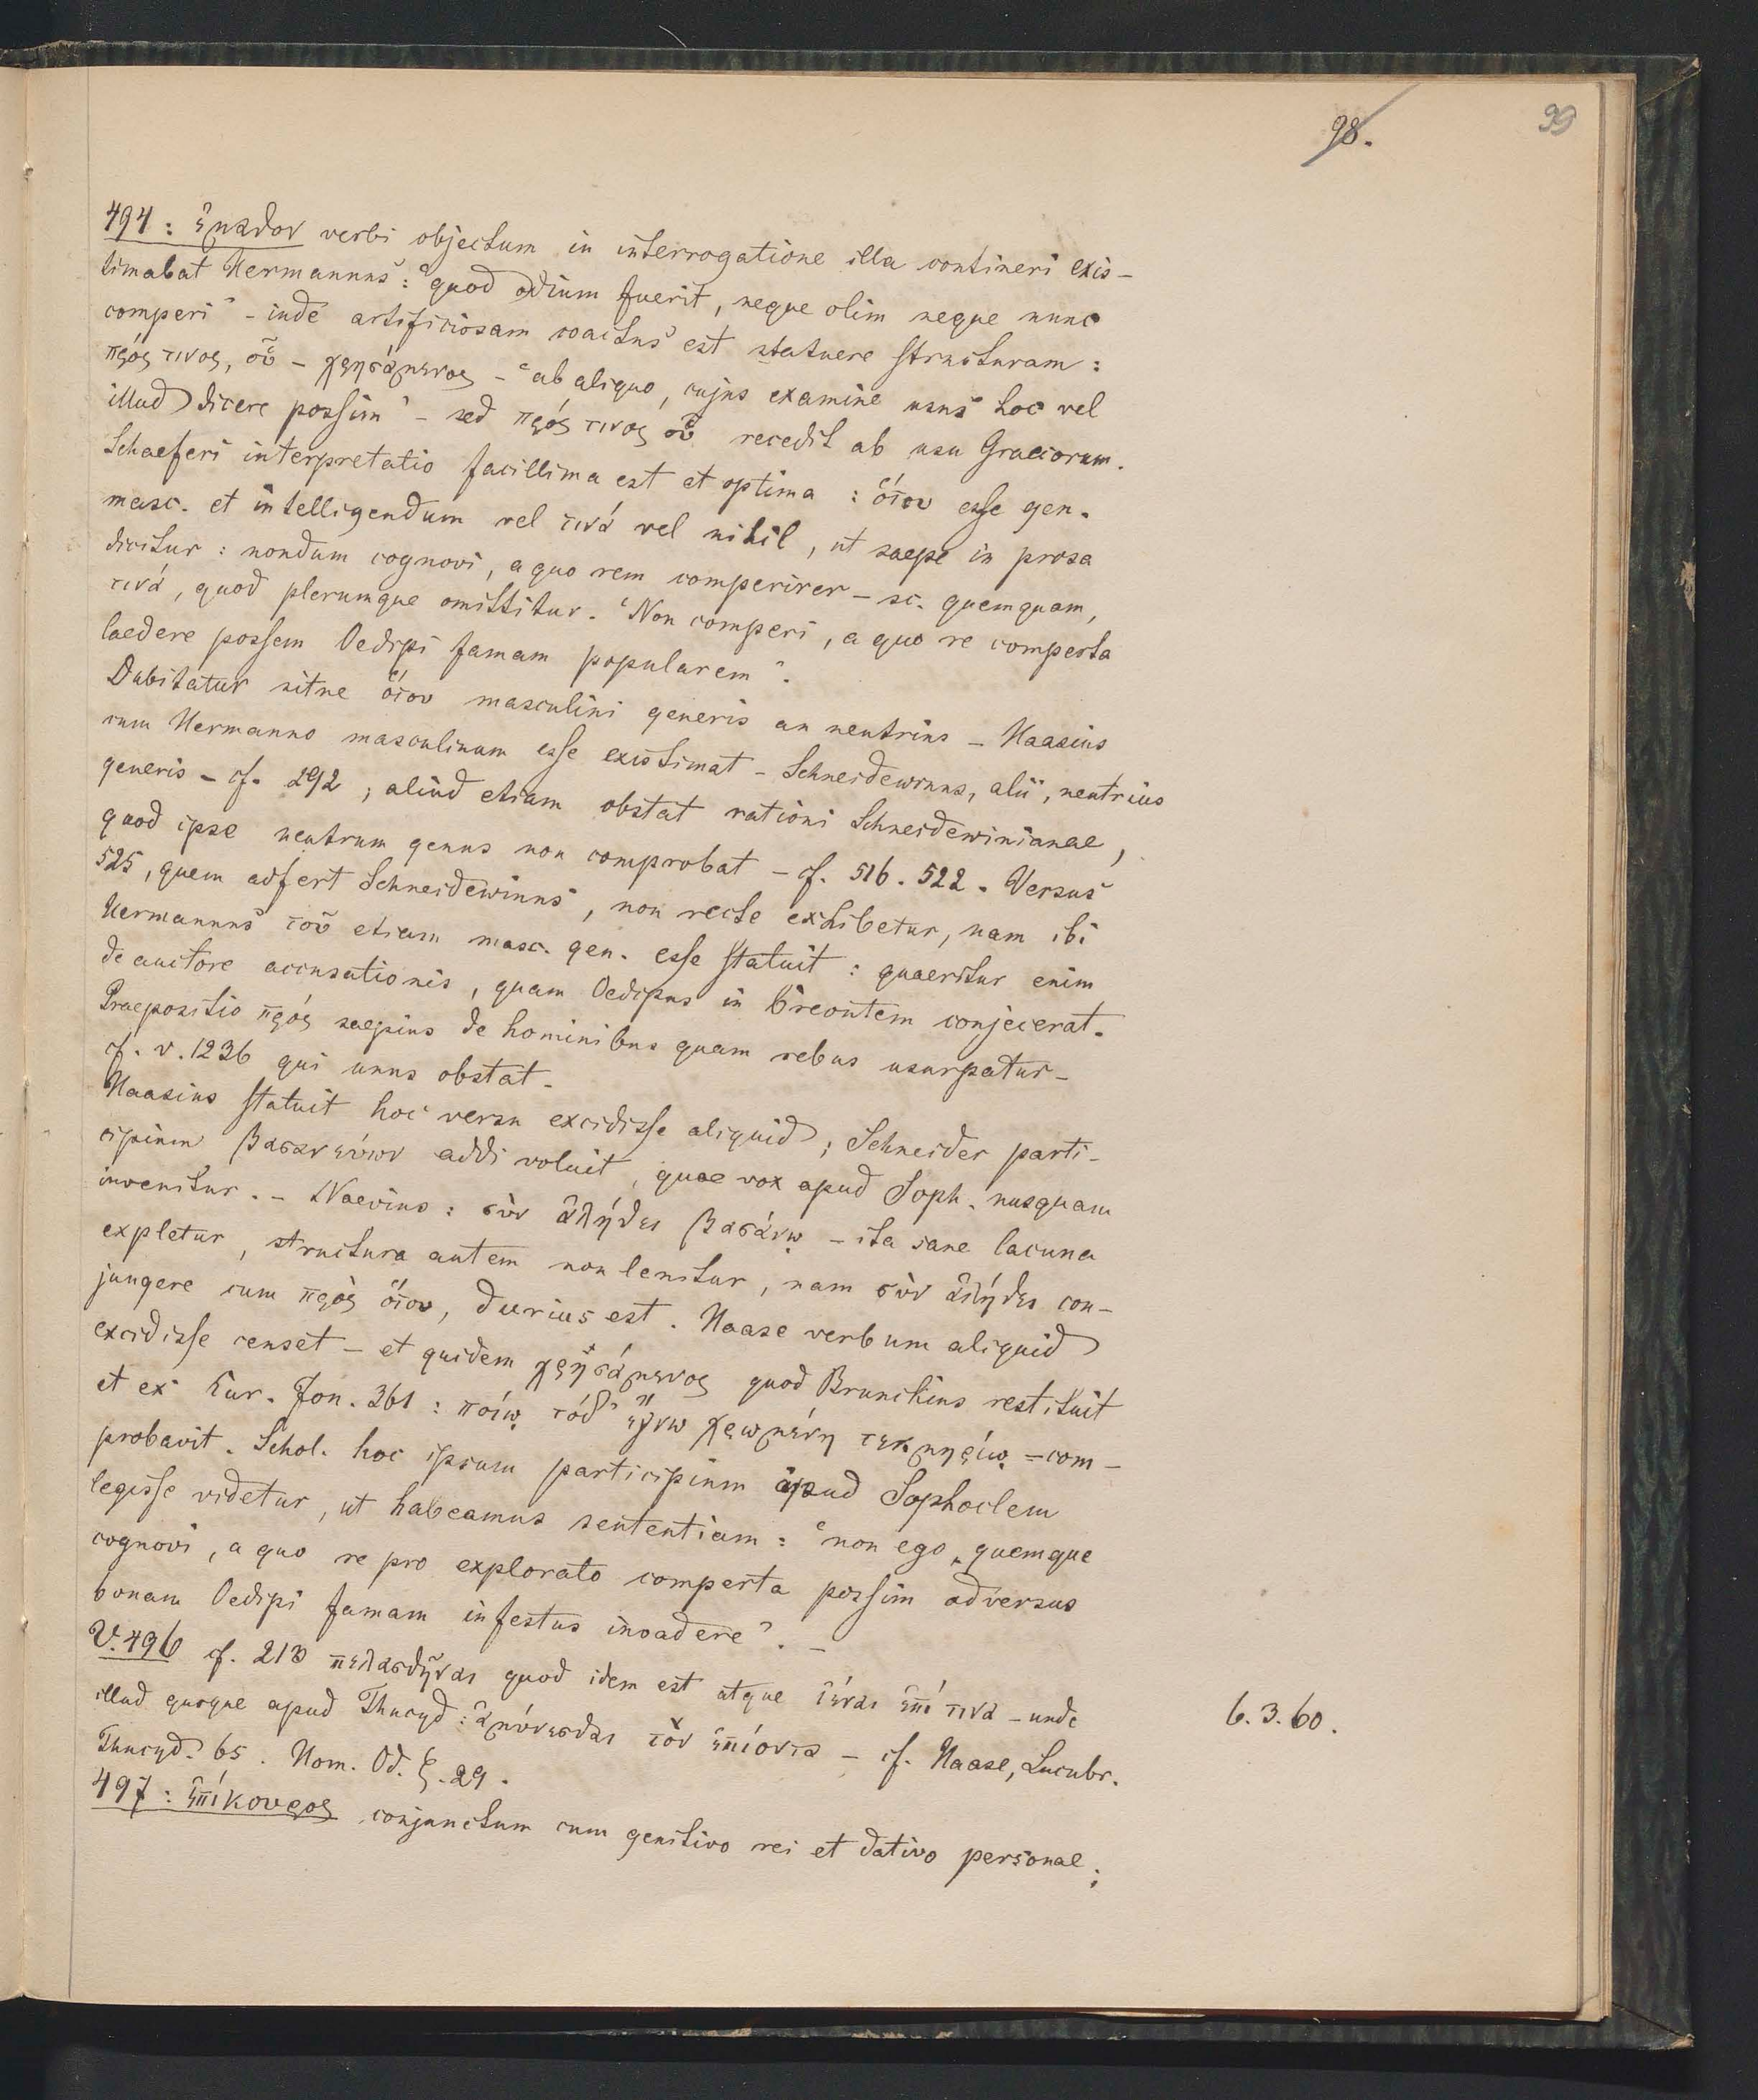 98.
99
494: ἔμαθον verbi objectum in interrogatione illa contineri exis-
timabat Hermannus: "quod odium fuerit, neque olim neque nunc
comperi" - inde artificiosam coactus est statuere structuram:
πρός τινος, οὗ - χρησάμενος - "ab aliquo, cujus examine usus hoc vel
illud dicere possim" - sed πρός τινος οὗ recedit ab usu Graecorum.
Schaeferi interpretatio facillima est et optima: ὅτου esse gen.
masc. et intelligendum vel τινά vel nihil, ut saepe in prosa
dicitur: nondum cognovi, a quo rem comperirer - sc. quemquam,
τινά, quod plerumque omittitur. "Non comperi, a quo re comperta
laedere possem Oedipi famam popularem".
Dubitatur sitne ὅτου masculini generis an neutrius - Haasius
cum Hermanno masculinum esse existimat - Schneidewinus, alii, neutrius
generis - cf. 292; aliud etiam obstat rationi Schneidewinianae,
quod ipse neutrum genus non comprobat - cf. 516. 522. Versus
525, quem adfert Schneidewinus, non recte exhibetur, nam ibi
Hermannus τοῦ etiam masc. gen. esse statuit: quaeritur enim
de auctore accusationis, quam Oedipus in Creontem conjecerat.
Praepositio πρός saepius de hominibus quam rebus usurpatur -
cf. v. 1236 qui unus obstat.
Haasius statuit hoc versu excidisse aliquid; Schneider parti-
cipium βασανεύων addi voluit, quae vox apud Soph. nusquam
invenitur. - Naevius: σὺν ἀλήθει βασάνῳ - ita sane lacuna
expletur, structura autem non lenitur, nam σὺν ἀλήθει con-
jungere cum πρὸς ὅτου, durius est. Haase verbum aliquid
excidisse censet - et quidem χρησάμενος quod Brunckius restituit
et ex Eur. Jon. 361: ποίῳ τόδ' ἔγνω χρωμένη τεκμηρίῳ - com-
probavit. Schol. hoc ipsum participium apud Sophoclem
legisse videtur, ut habeamus sententiam: "non ego quemque
cognovi, a quo re pro explorato comperta possim adversus
bonam Oedipi famam infestus invadere". -
V. 496 cf. 213 πελασθῆναι quod idem est atque ἰέναι ἐπί τινα - unde
illud quoque apud Thucyd: ἀμύνεσθαι τὸν ἐπιόντα - cf. Haase, Lucubr.
Thucyd. 65. Hom. Od. ξ. 29.
6. 3. 60.
497: ἐπίκουρος conjunctum cum genitivo rei et dativo personae;